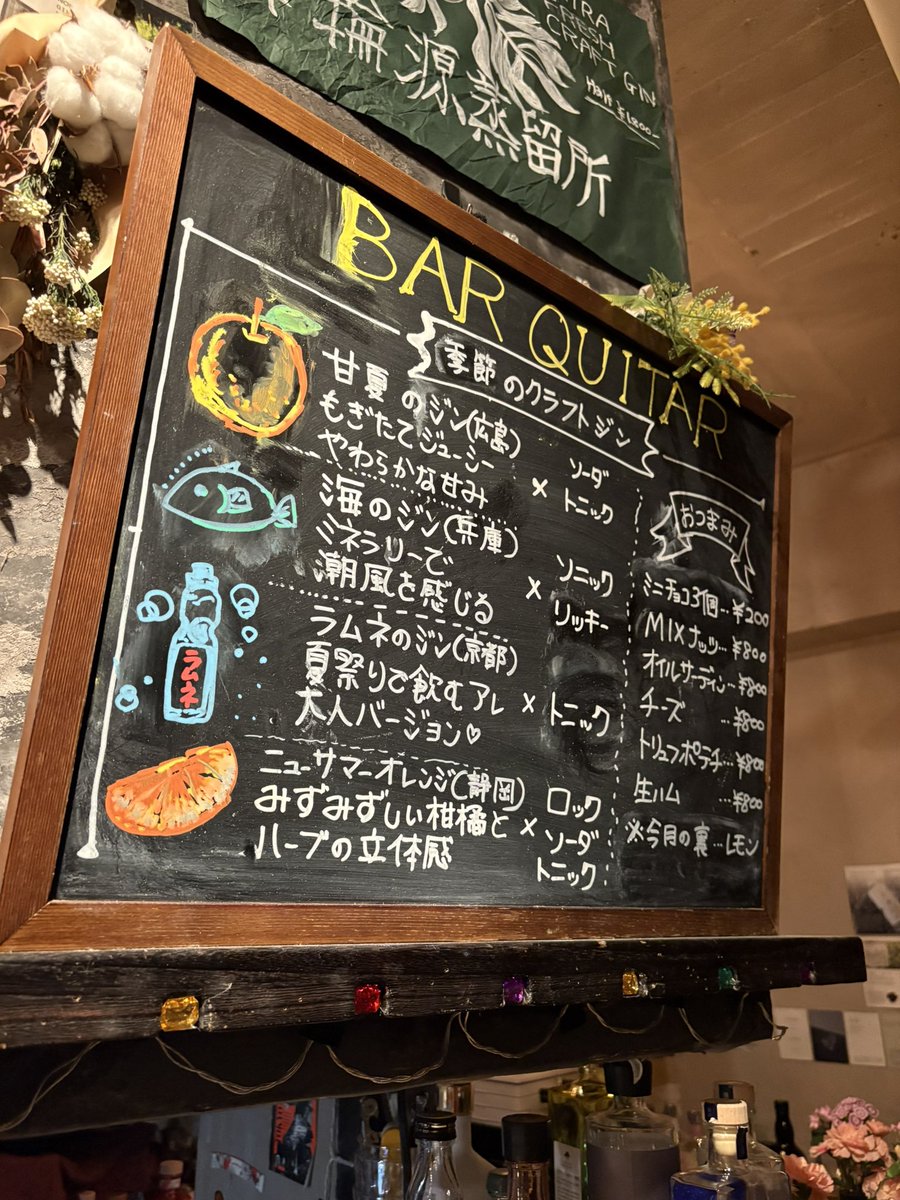 FRESH
CRAFT GIN
Half ¥1800-
源蒸留所
BAR QUITAR
季節のクラフトジン
甘夏のジン(広島)
もぎたてジューシー
やわらかな甘み
× ソーダ
トニック
海のジン(兵庫)
ミネラリーで
潮風を感じる
× ソニック
リッキー
ラムネ
ラムネのジン(京都)
夏祭りで飲むアレ
大人バージョン♡
× トニック
ニューサマーオレンジ(静岡)
みずみずしい柑橘と
ハーブの立体感
× ロック
ソーダ
トニック
おつまみ
ミニチョコ3個…¥200
MIXナッツ…¥800
オイルサーディン…¥800
チーズ …¥800
トリュフポテチ…¥800
生ハム …¥800
※今月の裏…レモン